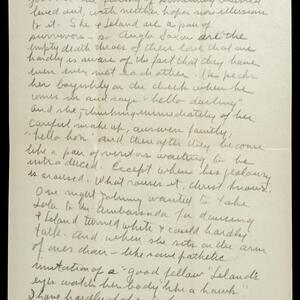 lived out, with neither hopes nor illusions
to it. She & Leland are a pair of
survivors – so Anglo Saxon are the
empty death throes of their love that one
hardly is aware of the fact that they have
even ever met each other. He pecks
her boyishly on the cheek when he
comes in and says "hello darling"
and she, thinking immediately of her
careful make up, answers faintly,
"hello hon" and thereafter they become
like a pair of visitors waiting to be
introduced. Except when his jealousy
is aroused. What rouses it, christ knows.
One night Johnny wanted to take
Lola to the Ambassador for dancing
& Leland turned white & could hardly
talk. And when she sits on the arm
of ones chair – like some pathetic
imitation of a "good fellow" Leland's
eyes watch her body like a hawk"
I have hardly